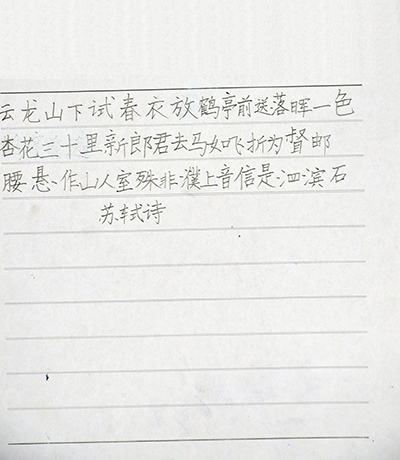 云龙山下试春衣放鹤亭前送落晖一色
杏花三十里新郎君去马如飞折为督邮
腰悬作山人室殊非濮上音信是泗滨石
苏轼诗